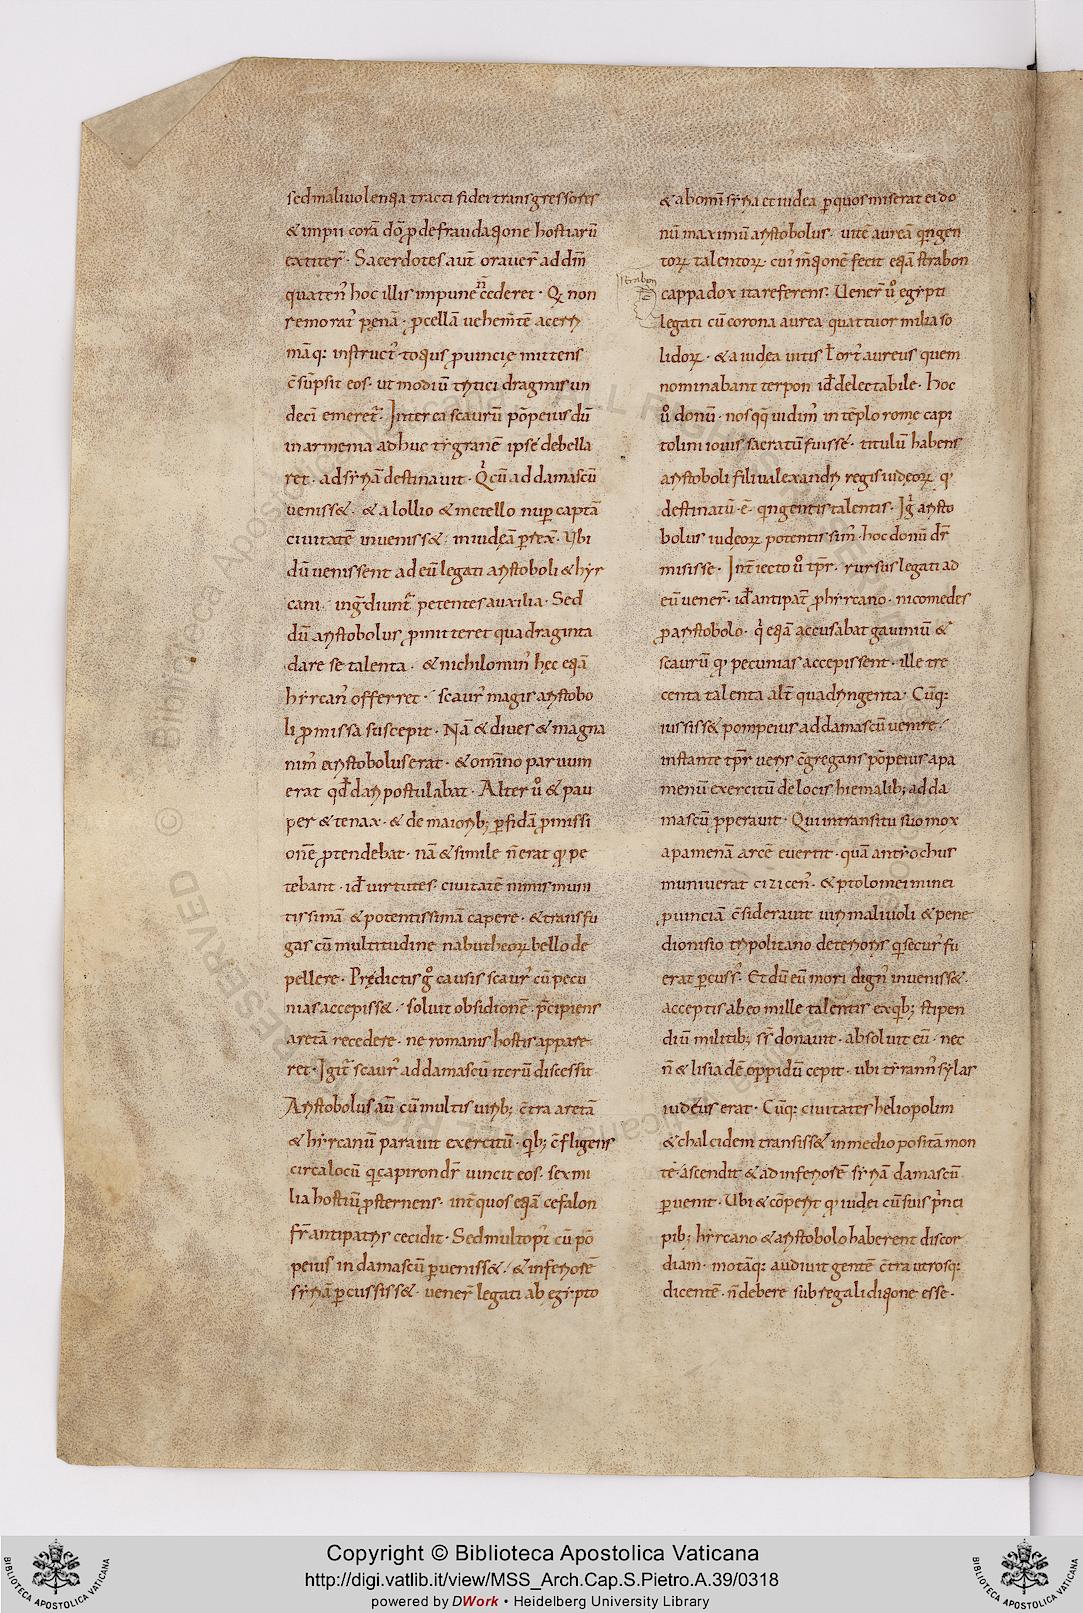 sed malivolentia tracti fidei transgressores
& impii corā dō ꝓ defraudatione hostiarū
extiter̄ · Sacerdotes aut̄ oraver̄ ad dm̄
quaten' hoc illis impune n̄ cederet · Qꝫ non
remorat' penā · ꝓcellā vehem̄te aceris
mā qꝫ instruct' totius ꝓvincię mittens
c̄sūpsit eos · ut modiū tritici dragmis un
deci emeret̄ · Interea scaurū pōpeius dū
in armenia adhuc tygranē ipse debella
ret · ad syriā destinavit · Qi cū ad damascū
veniss& · & a lollio & metello nuꝑ captā
civitatē inveniss& · in iudęā ꝑrex̄ · Ubi
dū venissent ad eū legati aristoboli & hyr
cani · ingrediunt̄ petentes auxilia · Sed
dū aristobolus ꝓmitteret quadraginta
dare se talenta · & nichilomin' hęc etiā
hyrcan' offerret · scaur' magis aristobo
li ꝓmissa suscepit · Nā & dives & magna
nim' aristobolus erat · & omīno parvum
erat qd̄ dari postulabat · Alter v̊ & pau
per & tenax · & de maiorib; ꝑfidā ꝓmissi
onē ꝓtendebat · nā & simile n̄ erat qđ pe
tebant · id̄ virtutes · civitatē nimis muni
tissimā & potentissimā capere · & transfu
gas cū multitudine nabutheoꝝ bello de
pellere · Prędictis g̊ causis scaur' cū pecu
nias accepiss& · solvit obsidionē · p̄cipiens
aretā recedere · ne romanis hostis appare
ret · Igit̄ scaur' ad damascū iterū discessit
Aristobolus aū cū multis virib; c̄tra aretā
& hyrcanū paravit exercitū · qb; c̄fligens
circa locū q capiron dr̄ vincit eos · sex mi
lia hostiū ꝓsternens · int̄ quos etiā cefalon
fr̄ antipatris cecidit · Sed multo p' cū pō
peius in damascū ꝑveniss& · & inferiorē
syriā ꝑcussiss& · vener̄ legati ab egypto
strabon
& ab omi syria et iudea ꝑ quos miserat ei do
nū maximū aristobolus · vitē aureā qngen
toꝝ talentoꝝ · cui' m̄tionē fecit etiā strabon
cappadox ita referens · Vener̄ v̊ egypti
legati cū corona aurea quattuor milia so
lidoꝝ · & a iudea vitis l̄ ort' aureus quem
nominabant terpon id̄ delectabile · hoc
v̊ donū · nos qq vidim' in tēplo rome capi
tolini iovis sacratū fuisse · titulū habens
aristoboli filii alexandri regis iudeoꝝ qđ
destinatū · ē · qngentis talentis · Ig̅ aristo
bolus iudęoꝝ potentissim' hoc donū dr̄
misisse · Int̄iecto v̊ tp̄r · rursus legati ad
eū vener̄ · id̄ antipat̄ ꝓ hyrcano · nicomedes
ꝓ aristobolo · q etiā accusabat gaviniū &
scaurū qđ pecunias accepissent · ille tre
centa talenta alt̄ quadringenta · Cūqꝫ
iussiss& pompeius ad damascū venire ·
instante tp̄r veris c̄gregans pōpeius apa
menū exercitū de locis hiemalib; ad da
mascū ꝓperavit · Qui in transitu suo mox
apamenā arcē evertit · quā antiochus
muniverat cizicen' · & ptolomei minei
ꝓvinciā c̄sideravit viri malivoli & pene
dionisio tripolitano deterioris q securi fu
erat ꝑcuss' · Et dū eū mori dign' inveniss& ·
acceptis ab eo mille talentis ex qb; stipen
diū militib; sr̄ donavit · absolvit eū · nec
n̄ & lisiadē oppidū cepit · ubi tyrann' sylas
iudeus erat · Cūqꝫ civitates heliopolim
& chalcidem transiss& in medio positā mon
tē ascendit & ad inferiorē syriā damascū
ꝑvenit · Ubi & cōperit qđ iudei cū suis p̄nci
pib; hyrcano & aristobolo haberent discor
diam · motāqꝫ audivit gentē c̄tra utrosqꝫ
dicentē · n̄ debere sub regali ditione esse ·
Copyright © Biblioteca Apostolica Vaticana
http://digi.vatlib.it/view/MSS_Arch.Cap.S.Pietro.A.39/0318
powered by DWork • Heidelberg University Library